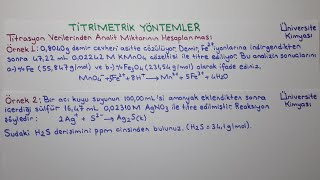 TİTRİMETRİK YÖNTEMLER
Titrasyon Verilerinden Analit Miktarının Hesaplanması
Üniversite Kimyası
Örnek 1: 0,8040g demir cevheri asitte çözülüyor. Demir, Fe²⁺ iyonlarına indirgendikten
sonra 47,22 mL 0,02242 M KMnO₄ çözeltisi ile titre ediliyor. Bu analizin sonuçlarını
a) %Fe (55,847g/mol) ve b) %Fe₃O₄ (231,54g/mol) olarak ifade ediniz.
MnO₄⁻ + 5Fe²⁺ + 8H⁺ → Mn²⁺ + 5Fe³⁺ + 4H₂O
Örnek 2: Bir acı kuyu suyunun 100,00mL'si amonyak eklendikten sonra
Üniversite Kimyası
içerdiği sülfür 16,47 mL 0,02310 M AgNO₃ ile titre edilmiştir. Reaksiyon
şöyledir: 2Ag⁺ + S²⁻ → Ag₂S(k)
Sudaki H₂S derişimini ppm cinsinden bulunuz. (H₂S = 34,1g/mol)